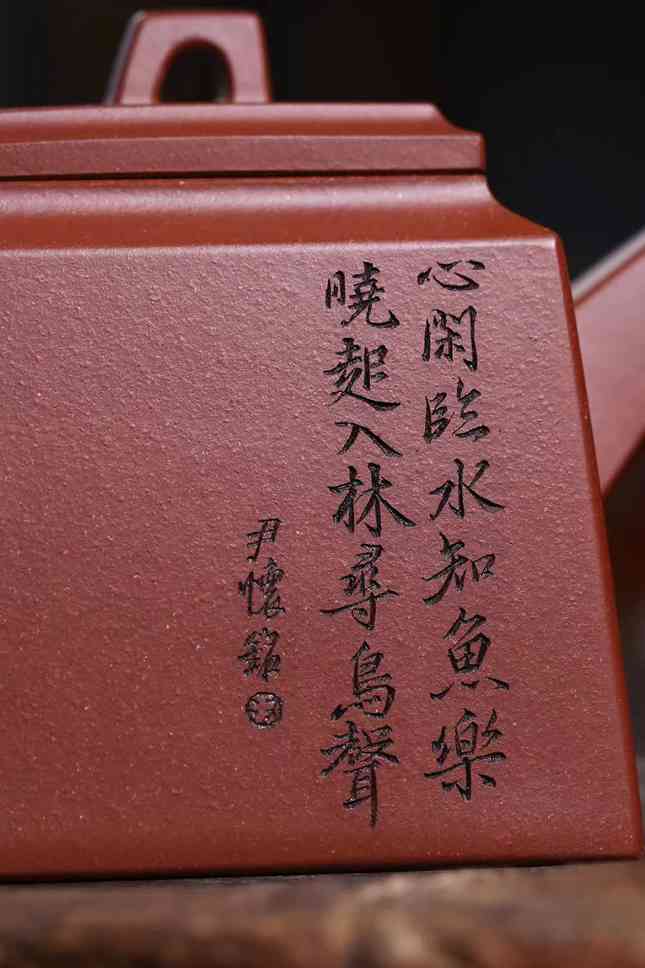 心閑臨水知魚樂
曉起入林尋鳥聲
尹懷銘